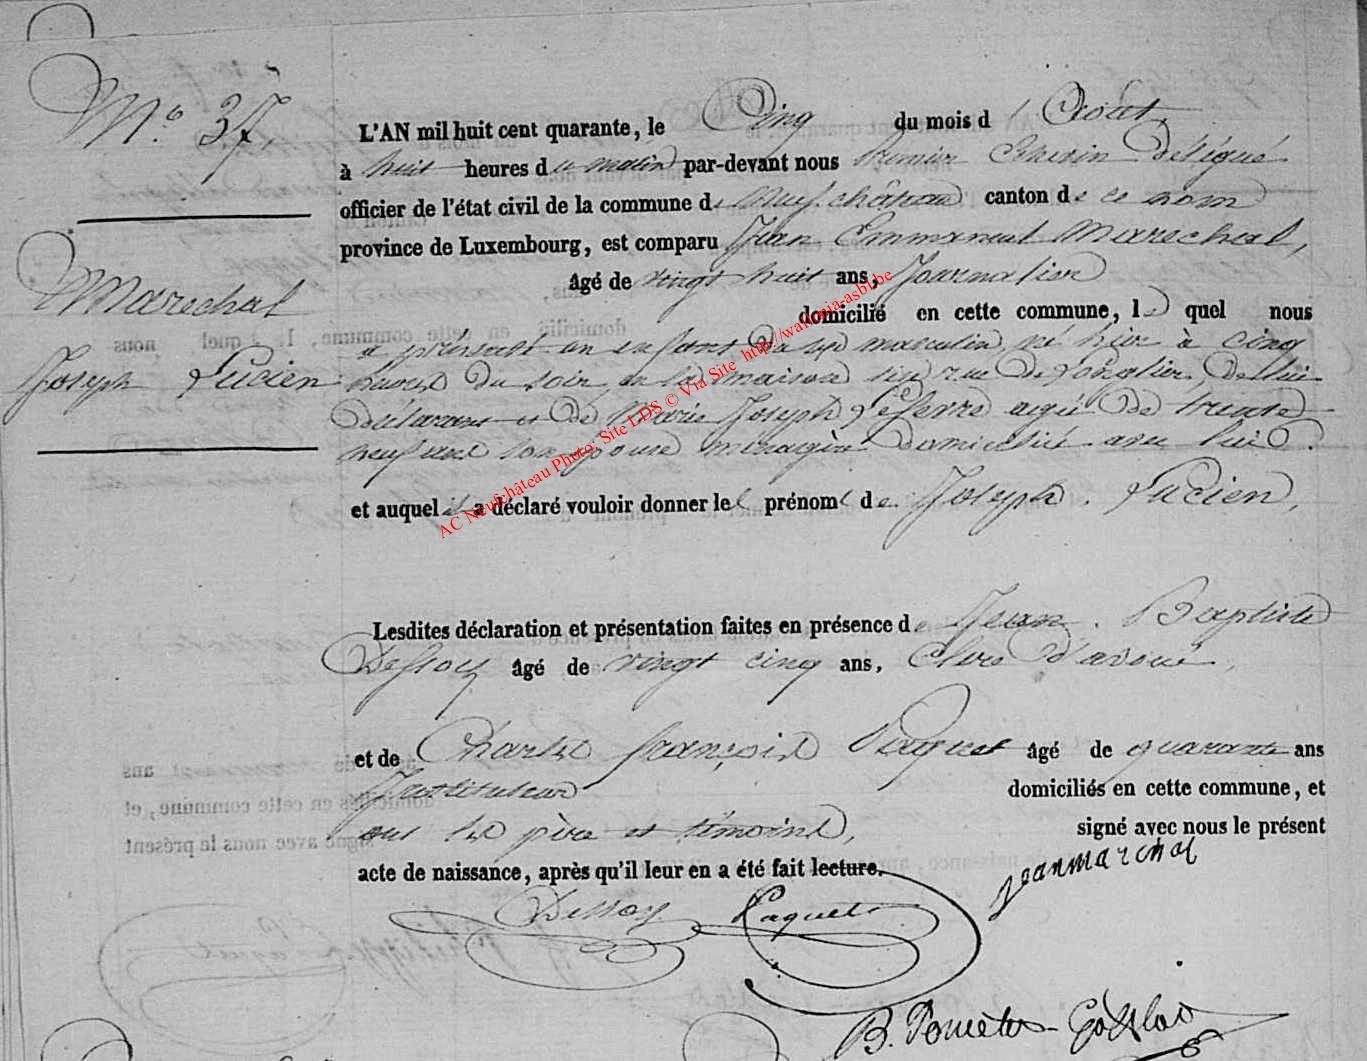 N.° 37.
L'AN mil huit cent quarante, le Cinq du mois d'Août,
à huit heures du matin par-devant nous Premier Echevin délégué
officier de l'état civil de la commune de Neufchâteau canton de ce nom
province de Luxembourg, est comparu Jean Emmanuel Marechal,
âgé de vingt huit ans, Journalier
domicilié en cette commune, lequel nous
Marechal
Joseph Lucien
a présenté un enfant du sexe masculin, né hier à cinq
heures du soir, en sa maison sise rue de, de lui
déclarant et de Marie Joseph Lefevre agée de trente
neuf ans son épouse ménagère domiciliée avec lui
et auquel il a déclaré vouloir donner les prénoms de Joseph. Lucien,
AC Neufchâteau Photo: Site LDS © Via Site http://wallonia-asbl.be
Lesdites déclaration et présentation faites en présence de Jean. Baptiste
Dessoy âgé de vingt cinq ans, Clerc d'avoué,
et de Charles françois Paquet âgé de quarante ans
Instituteur domiciliés en cette commune, et
ont les père et témoins, signé avec nous le présent
acte de naissance, après qu'il leur en a été fait lecture.
jeanmarchal
Dessoy Paquet
B.